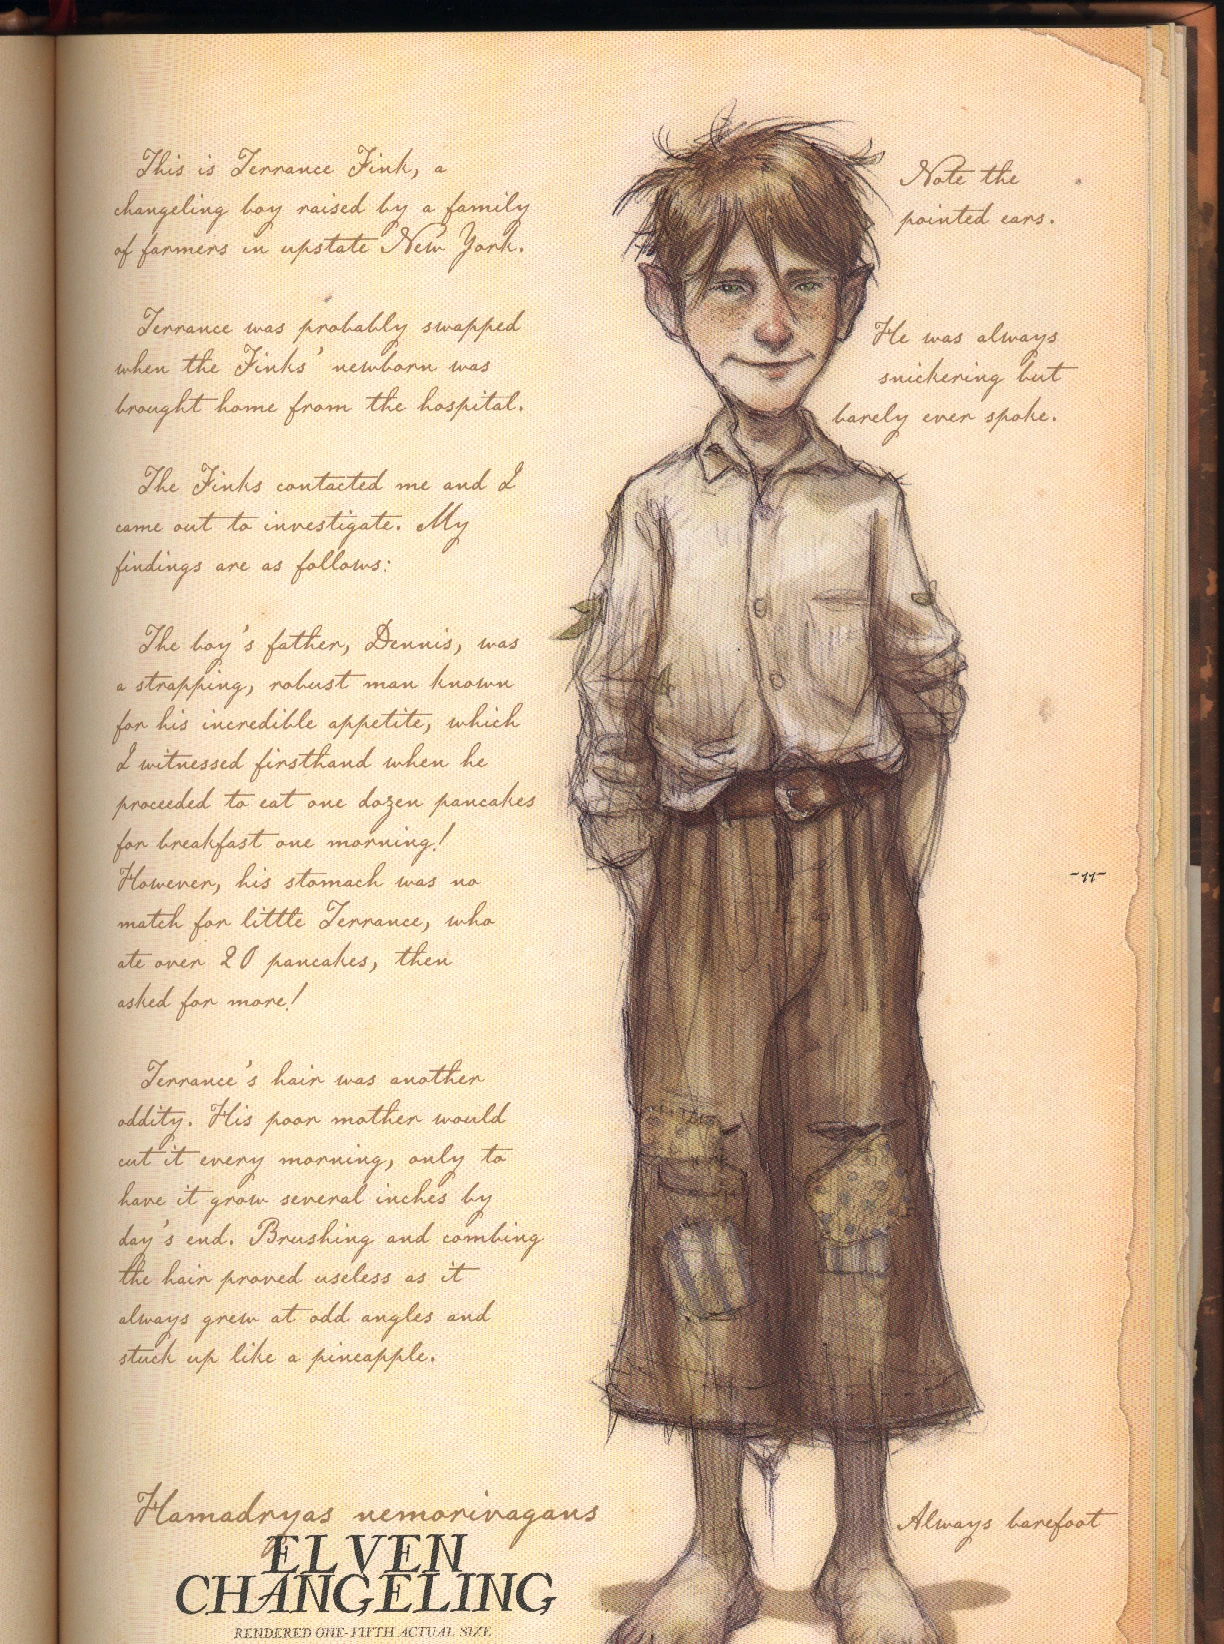 This is Terrance Fink, a
changeling boy raised by a family
of farmers in upstate New York.
Terrance was probably swapped
when the Finks' newborn was
brought home from the hospital.
The Finks contacted me and I
came out to investigate. My
findings are as follows:
The boy's father, Dennis, was
a strapping, robust man known
for his incredible appetite, which
I witnessed firsthand when he
proceeded to eat one dozen pancakes
for breakfast one morning!
However, his stomach was no
match for little Terrance, who
ate over 20 pancakes, then
asked for more!
Terrance's hair was another
oddity. His poor mother would
cut it every morning, only to
have it grow several inches by
day's end. Brushing and combing
the hair proved useless as it
always grew at odd angles and
stuck up like a pineapple.
Note the
pointed ears.
He was always
snickering but
barely ever spoke.
~11~
Always barefoot
Hamadryas nemorivagans
ELVEN
CHANGELING
RENDERED ONE-FIFTH ACTUAL SIZE